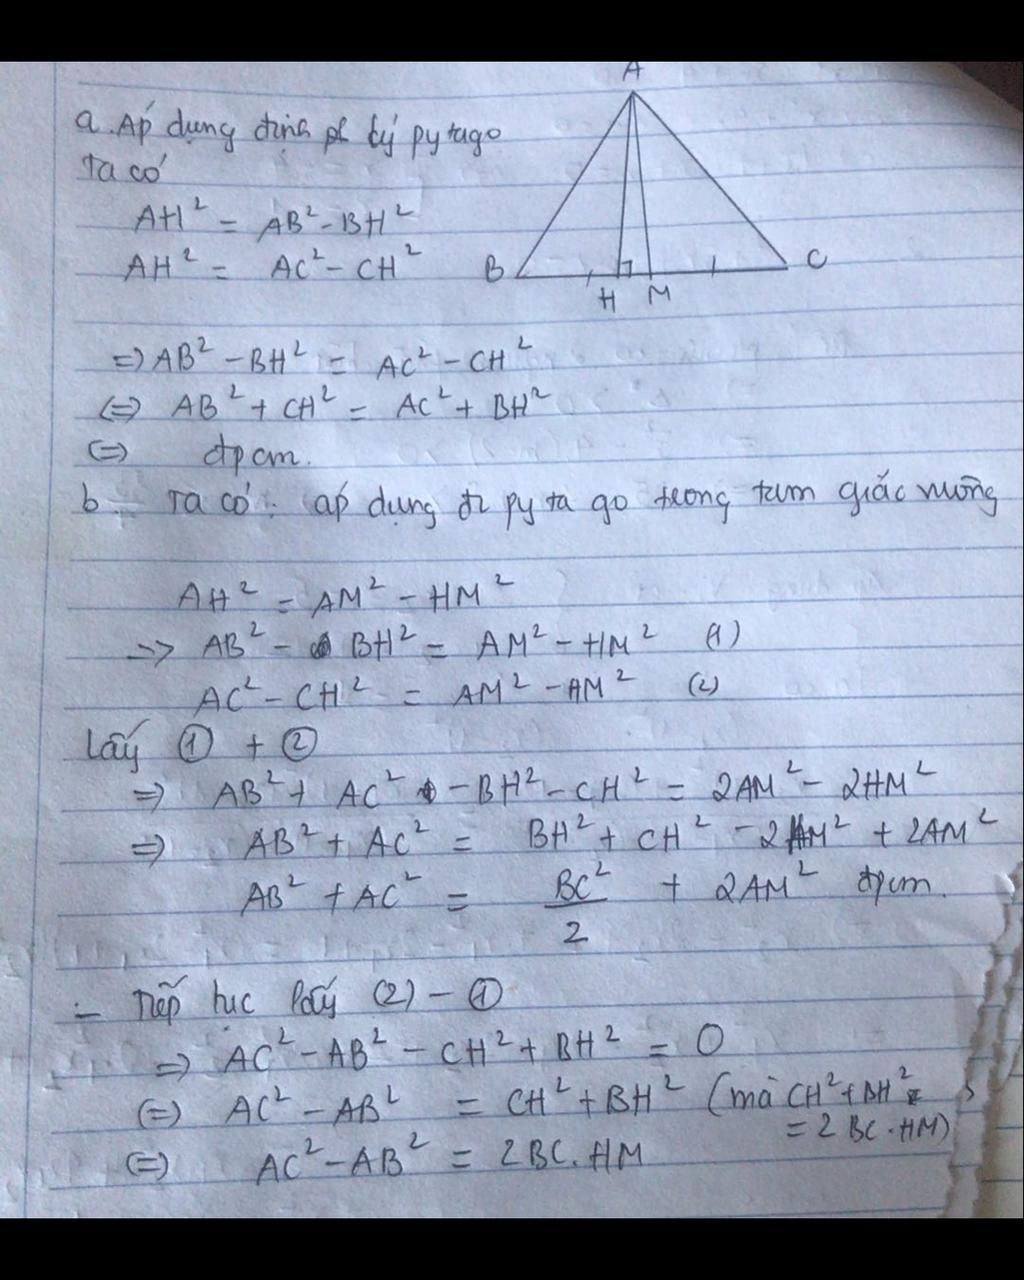 A
a. Áp dụng định lý pytago
Ta có
AH² = AB² - BH²
AH² = AC² - CH²
B C
H M
=> AB² - BH² = AC² - CH²
(=) AB² + CH² = AC² + BH²
(=) đpcm.
b. Ta có: áp dụng đl pytago trong tam giác vuông
AH² = AM² - HM²
=> AB² - BH² = AM² - HM² (1)
AC² - CH² = AM² - HM² (2)
Lấy ① + ②
=> AB² + AC² - BH² - CH² = 2AM² - 2HM²
=> AB² + AC² = BH² + CH² - 2HM² + 2AM²
AB² + AC² = BC²/2 + 2AM² đpcm.
- Tiếp tục lấy (2) - ①
=> AC² - AB² - CH² + BH² = 0
(=) AC² - AB² = CH² + BH² (mà CH² + BH²
= 2BC.HM)
(=) AC² - AB² = 2BC.HM